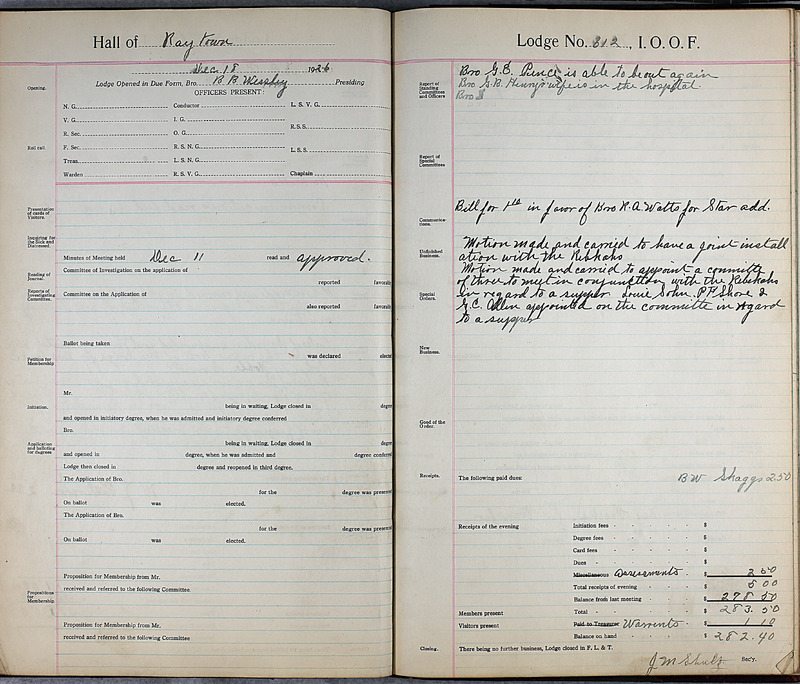 Hall of Raytown
Dec 18 1926
Lodge Opened in Due Form, Bro. B. B. Presiding
OFFICERS PRESENT:
Opening.
N. G. Conductor L. S. V. G.
V. G. I. G.
R. Sec. O. G. R.S.S.
Roll call.
F. Sec. R. S. N. G. L. S. S.
Treas. L. S. N. G.
Warden R. S. V. G. Chaplain
Presentation of cards of Visitors.
Inquiring for the Sick and Distressed.
Minutes of Meeting held Dec 11 read and approved.
Reading of Journal.
Committee of Investigation on the application of
reported favorab
Reports of Investigating Committee.
Committee on the Application of
also reported favorab
Ballot being taken
was declared elect
Petition for Membership
Mr.
Initiation.
being in waiting, Lodge closed in degre
and opened in initiatory degree, when he was admitted and initiatory degree conferred
Bro.
Application and balloting for degrees
being in waiting, Lodge closed in degre
and opened in degree, when he was admitted and degree conferre
Lodge then closed in degree and reopened in third degree.
The Application of Bro.
for the degree was presen
On ballot was elected.
The Application of Bro.
for the degree was presen
On ballot was elected.
Proposition for Membership from Mr.
Propositions for Membership.
received and referred to the following Committee
Proposition for Membership from Mr.
received and referred to the following Committee
Lodge No. 312, I. O. O. F.
Report of Standing Committees and Officers
Bro G.E. Pence is able to be out again
Bro G.B. Henry's wife is in the hospital.
Bro
Report of Special Committees
Communications.
Bill for 1.10 in favor of Bro R. A Watts for Star add.
Unfinished Business.
Motion made and carried to have a joint install
ation with the Rebekahs
Motion made and carried to appoint a committe
of three to meet in conjunction with the Rebekahs
Special Orders.
in regard to a supper. Louie Sohn, P F Shore &
G.C. Allen appointed on the committe in regard
to a supper
New Business.
Good of the Order.
Receipts.
The following paid dues: B W Skaggs 2.50
Receipts of the evening Initiation fees $
Degree fees $
Card fees $
Dues $
Miscellaneous Assessments $ 2 50
Total receipts of evening $ 5 00
Balance from last meeting $ 278 50
Members present Total $ 283.50
Visitors present Paid to Treasurer Warrents $ 1 10
Balance on hand $ 282.40
Closing.
There being no further business, Lodge closed in F. L. & T.
J M Shultz Sec'y.